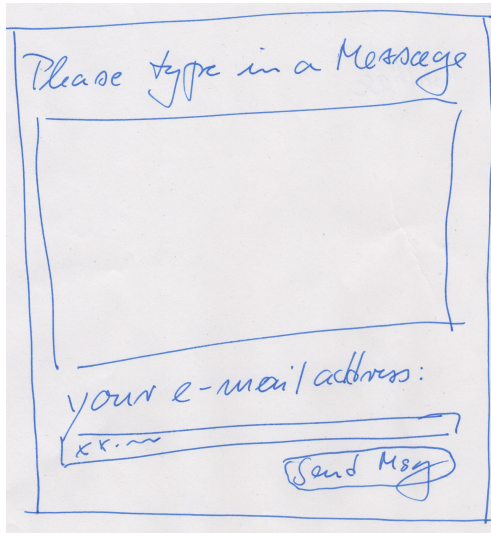 Please type in a Message
your e-mail address:
xx.~~
Send Msg